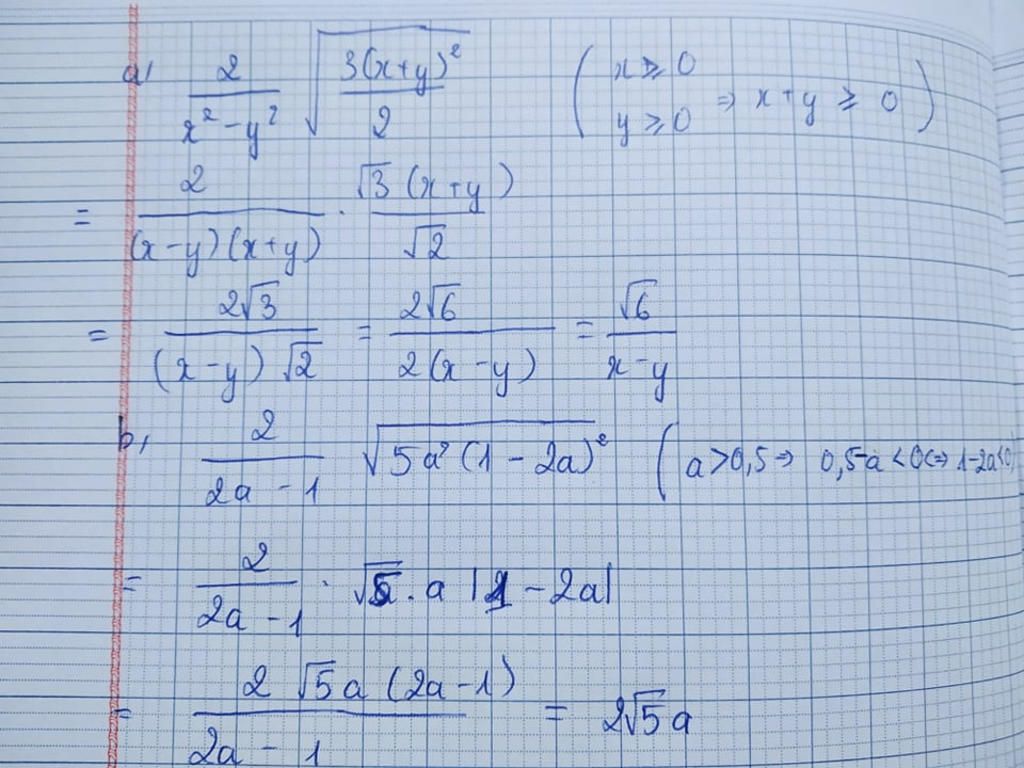 a, 2/(x² - y²) √(3(x+y)²/2) ( x ≥ 0 y ≥ 0 ⇒ x + y ≥ 0 )
= 2/((x-y)(x+y)) · √3(x+y)/√2
= 2√3/((x-y)√2) = 2√6/(2(x-y)) = √6/(x-y)
b, 2/(2a - 1) √(5a²(1 - 2a)²) ( a > 0,5 ⇒ 0,5-a < 0 ⇔ 1-2a < 0
= 2/(2a - 1) · √5 . a |1 - 2a|
= 2√5a(2a-1)/(2a - 1) = 2√5a